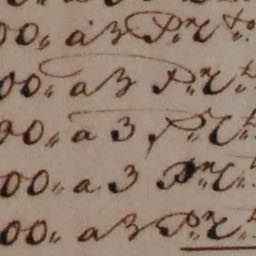 00„ a 3 P„r C„to
00„ a 3 P„r C„to
00„ a 3 P„r C„to
00„ a 3 P„r C„to
00„ a 3 P„r C„to